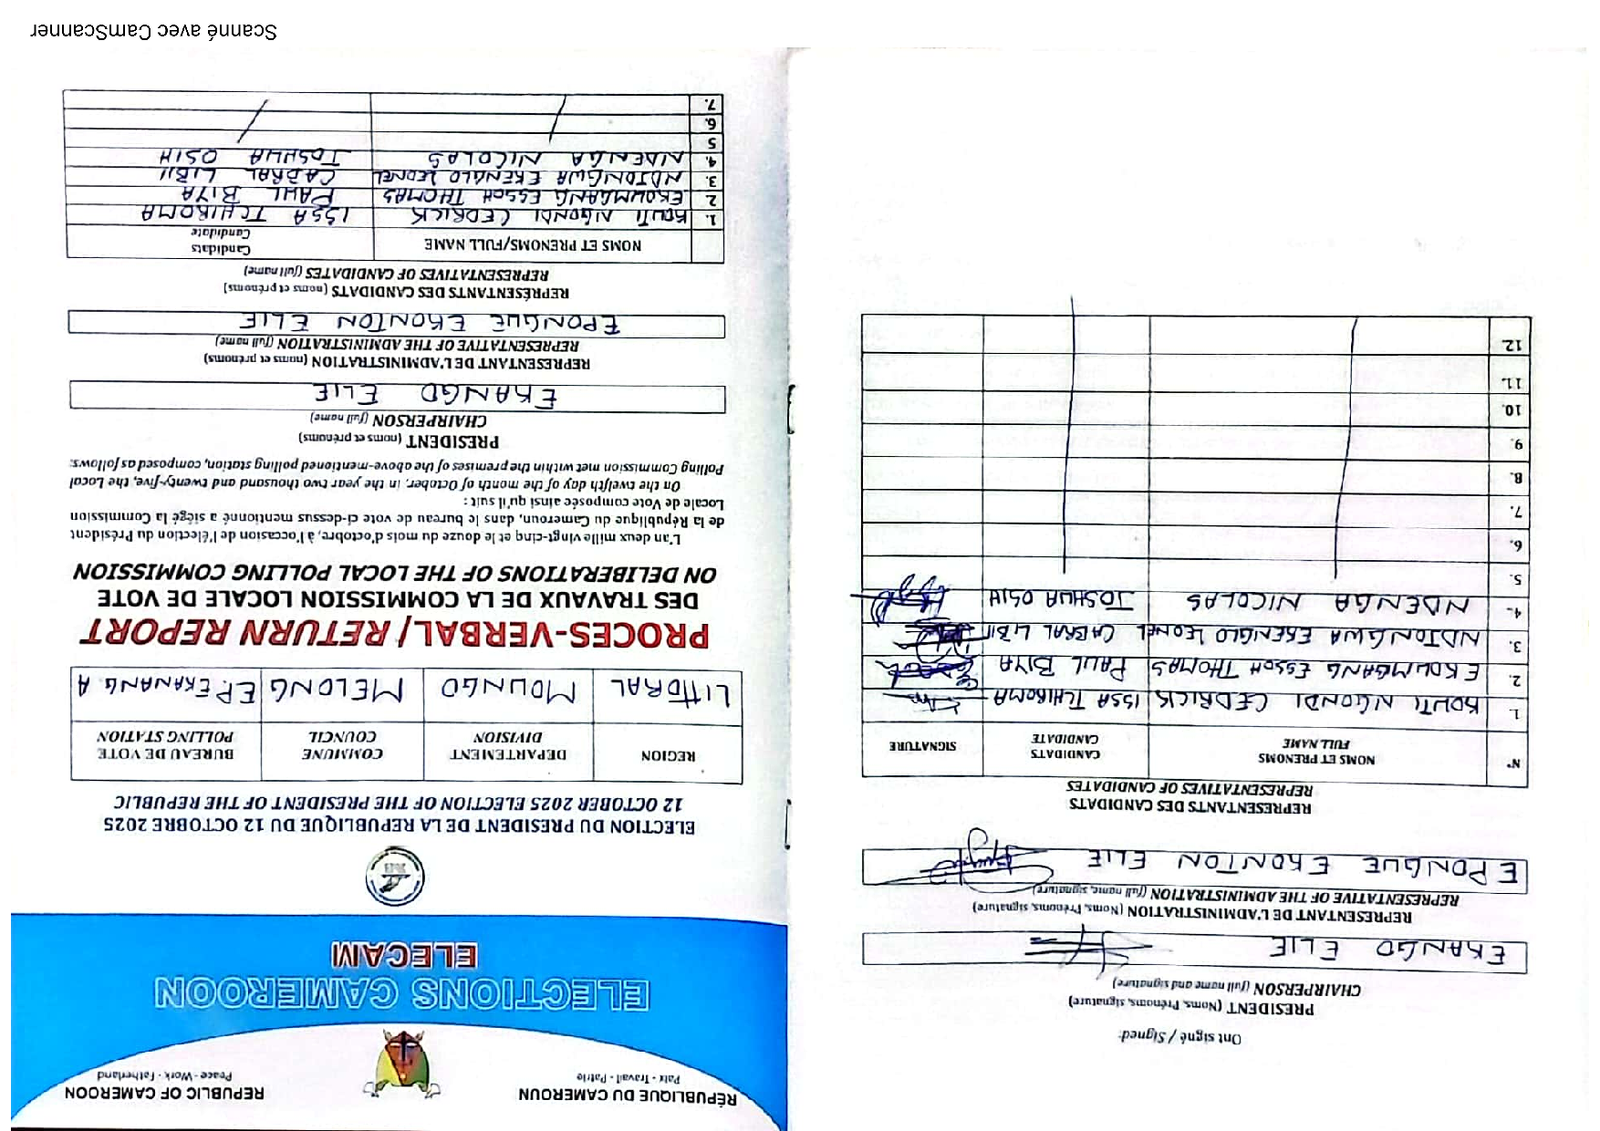 RÉPUBLIQUE DU CAMEROUN
Paix - Travail - Patrie
REPUBLIC OF CAMEROON
Peace - Work - Fatherland
ELECTIONS CAMEROON
ELECAM
2025
ELECTION DU PRESIDENT DE LA REPUBLIQUE DU 12 OCTOBRE 2025
12 OCTOBER 2025 ELECTION OF THE PRESIDENT OF THE REPUBLIC
REGION
DEPARTEMENT
DIVISION
COMMUNE
COUNCIL
BUREAU DE VOTE
POLLING STATION
LITTORAL
MOUNGO
MELONG
EP. EKANANG A
PROCES-VERBAL/ RETURN REPORT
DES TRAVAUX DE LA COMMISSION LOCALE DE VOTE
ON DELIBERATIONS OF THE LOCAL POLLING COMMISSION
L'an deux mille vingt-cinq et le douze du mois d'octobre, à l'occasion de l'élection du Président
de la République du Cameroun, dans le bureau de vote ci-dessus mentionné a siégé la Commission
Locale de Vote composée ainsi qu'il suit :
On the twelfth day of the month of October, in the year two thousand and twenty-five, the Local
Polling Commission met within the premises of the above-mentioned polling station, composed as follows:
PRESIDENT (noms et prénoms)
CHAIRPERSON (full name)
EKANGO ELIE
REPRESENTANT DE L'ADMINISTRATION (noms et prénoms)
REPRESENTATIVE OF THE ADMINISTRATION (full name)
EPONGUE EKONTON ELIE
REPRÉSENTANTS DES CANDIDATS (noms et prénoms)
REPRESENTATIVES OF CANDIDATES (full name)
NOMS ET PRENOMS/FULL NAME
Candidats
Candidate
1. KOUTI NGONDI CEDRICK ISSA TCHIROMA
2 EKOUMGANG ESSOH THOMAS PAUL BIYA
3. NDJONGWA EKENGLO LEONEL CABRAL LIBII
4. NDENGA NICOLAS JOSHUA OSIH
5
6.
7.
Ont signé / Signed:
PRESIDENT (Noms, Prénoms, signature)
CHAIRPERSON (full name and signature)
EKANGO ELIE
REPRESENTANT DE L'ADMINISTRATION (Noms, Prénoms, signature)
REPRESENTATIVE OF THE ADMINISTRATION (full name, signature)
EPONGUE EKONTON ELIE
REPRESENTANTS DES CANDIDATS
REPRESENTATIVES OF CANDIDATES
N°
NOMS ET PRENOMS
FULL NAME
CANDIDATS
CANDIDATE
SIGNATURE
1. KOUTI NGONDI CEDRICK ISSA TCHIROMA
2. EKOUMGANG ESSOH THOMAS PAUL BIYA
3. NDJONGWA EKENGLO LEONEL CABRAL LIBII
4. NDENGA NICOLAS JOSHUA OSIH
5.
6.
7.
8.
9.
10.
11.
12.
Scanné avec CamScanner